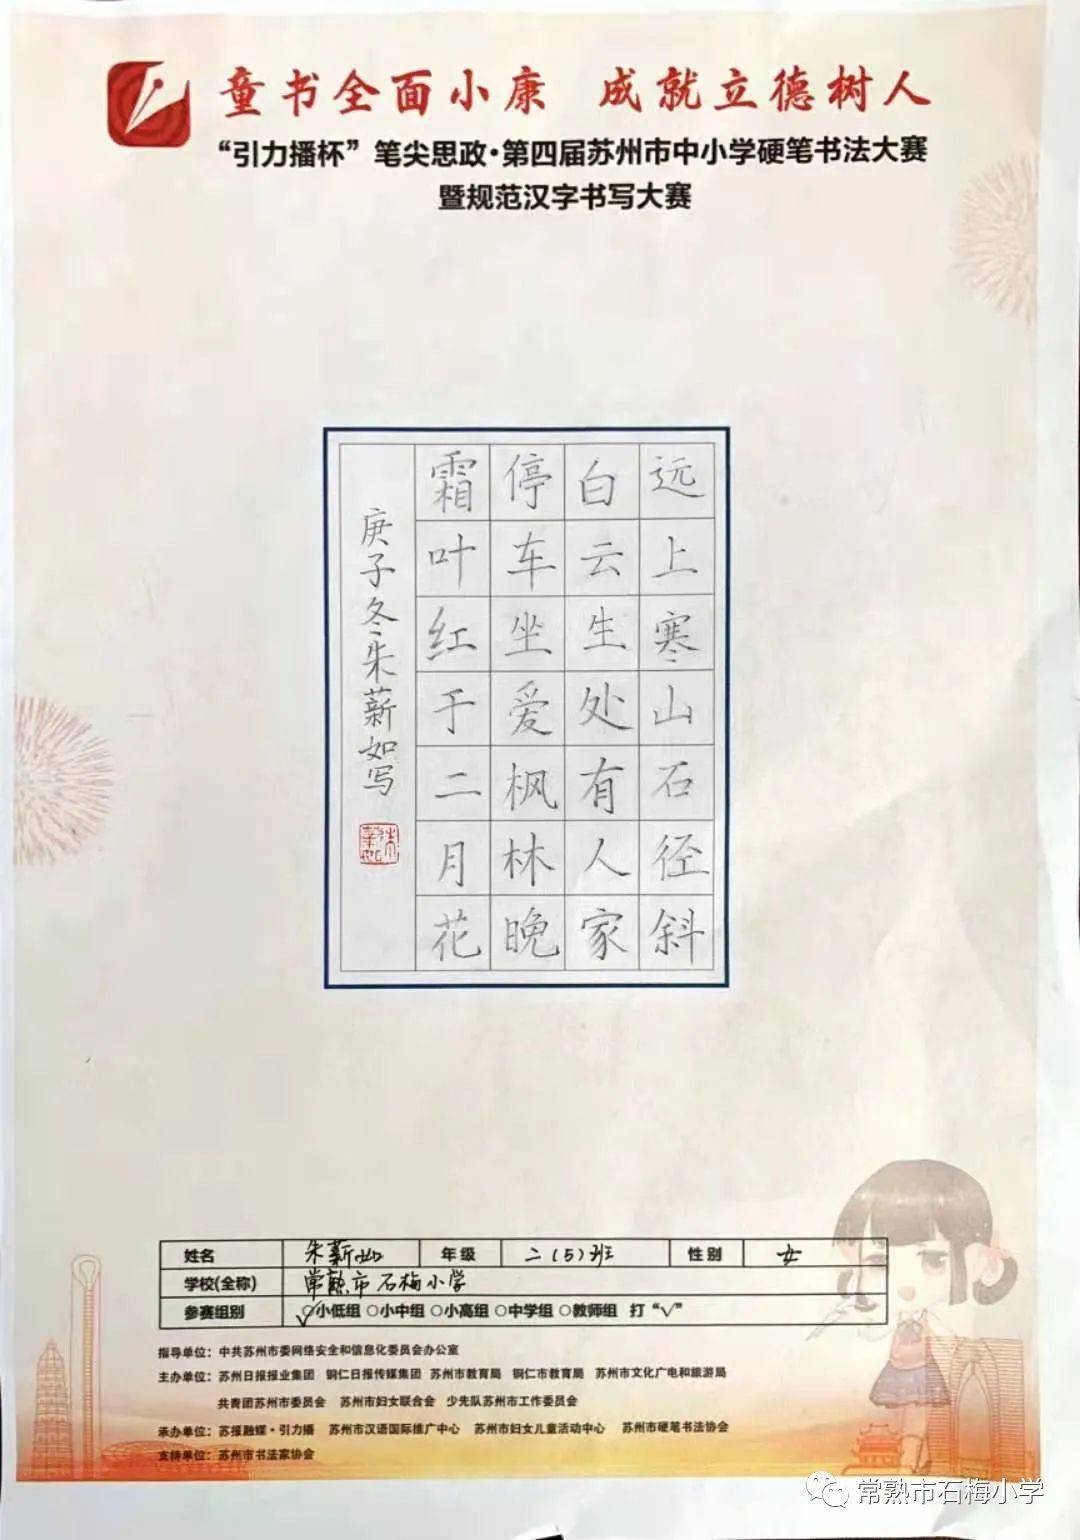 童书全面小康 成就立德树人
“引力播杯”笔尖思政·第四届苏州市中小学硬笔书法大赛
暨规范汉字书写大赛
远上寒山石径斜
白云生处有人家
停车坐爱枫林晚
霜叶红于二月花
庚子冬朱薪如写
姓名 朱薪如 年级 二(5)班 性别 女
学校(全称) 常熟市石梅小学
参赛组别 ○小低组 ○小中组 ○小高组 ○中学组 ○教师组 打“√”
指导单位：中共苏州市委网络安全和信息化委员会办公室
主办单位：苏州日报报业集团 铜仁日报传媒集团 苏州市教育局 铜仁市教育局 苏州市文化广电和旅游局
共青团苏州市委员会 苏州市妇女联合会 少先队苏州市工作委员会
承办单位：苏报融媒·引力播 苏州市汉语国际推广中心 苏州市妇女儿童活动中心 苏州市硬笔书法协会
支持单位：苏州市书法家协会
常熟市石梅小学